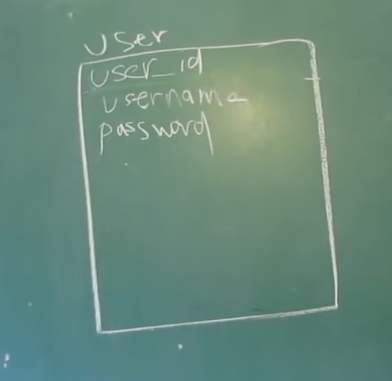 user
user_id
username
password